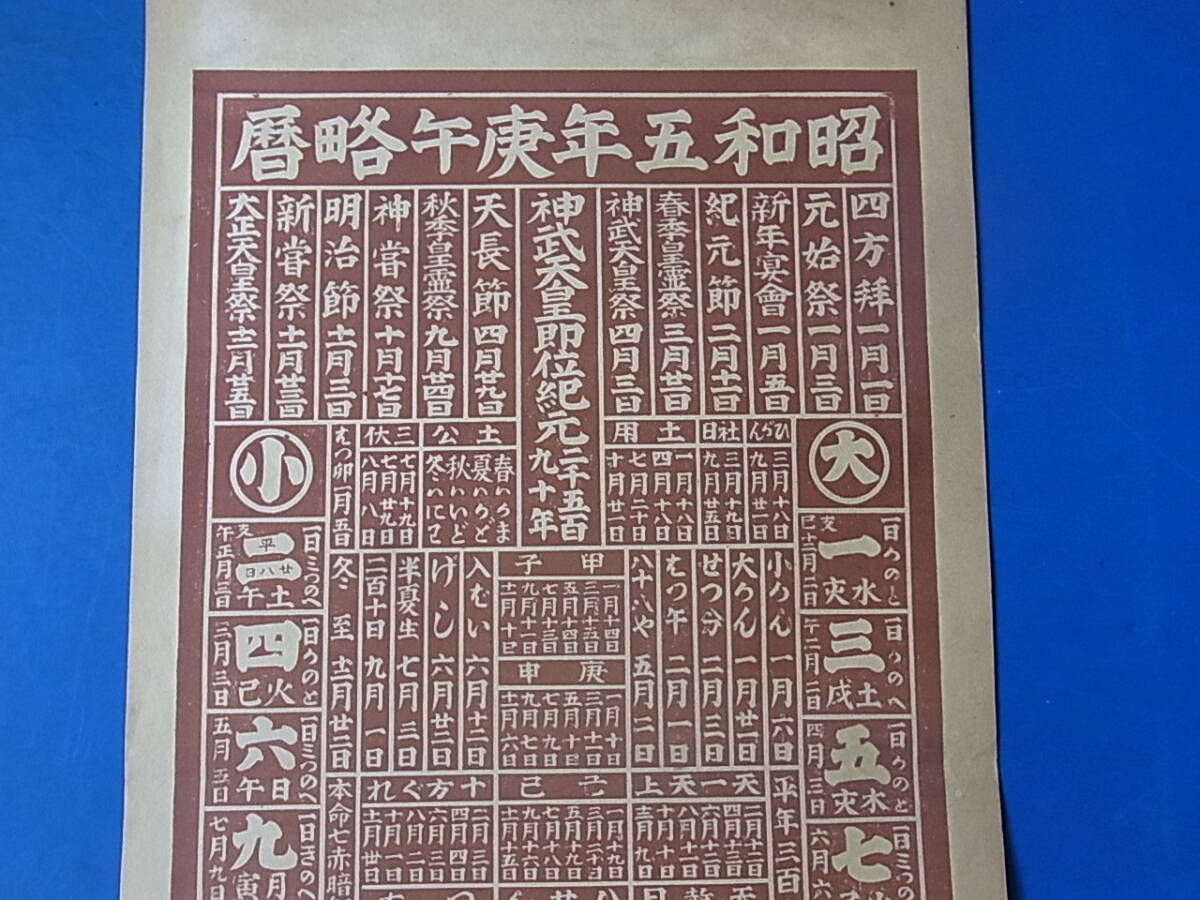 昭和五年庚午略暦
四方拜一月一日
元始祭一月三日
新年宴會一月五日
紀元節二月十一日
春季皇霊祭三月廿一日
神武天皇祭四月三日
神武天皇即位紀元二千五百九十年
天長節四月廿九日
秋季皇霊祭九月廿四日
神嘗祭十月十七日
明治節十一月三日
新嘗祭十一月廿三日
大正天皇祭十二月廿五日
大
ひがん
三月十八日
九月廿一日
社日
三月十九日
九月廿五日
土用
一月十八日
四月十八日
七月二十日
十月廿一日
土公
春いかま
夏いかど
秋いいど
冬いにわ
三伏
七月十九日
七月廿九日
八月八日
はつ卯一月五日
小
小かん 一月六日
大かん 一月廿一日
せつ分 二月三日
はつ午 二月一日
八十八や 五月二日
甲子
一月十四日
三月十五日
五月十四日
七月十三日
九月十一日
十一月十日
庚申
一月十日
三月十一日
五月十日
七月九日
九月七日
十一月六日
入むい 六月十二日
げし 六月廿二日
半夏生 七月三日
二百十日 九月一日
冬至 十二月廿二日
一日かのと
一水
亥
巳十二月二日
一日かのへ
三土
戌
午二月二日
一日かのと
五木
亥
四月三日
一日みつの
七
六月六
一日みつのへ
二土
平廿八日
午
亥
午正月三日
一日かのと
四火
巳
三月三日
一日みつのへ
六日
午
五月五日
一日きのへ
九月
寅
七月九日
平年三百
天一天上
二月十二日
四月十三日
六月十二日
八月十一日
十月十日
十二月九日
己巳
一月十九日
三月二十日
五月十九日
七月十八日
九月十六日
十一月十五日
十方ぐれ
二月三日
四月四日
六月三日
八月二日
十月一日
十一月廿日
本命七赤暗